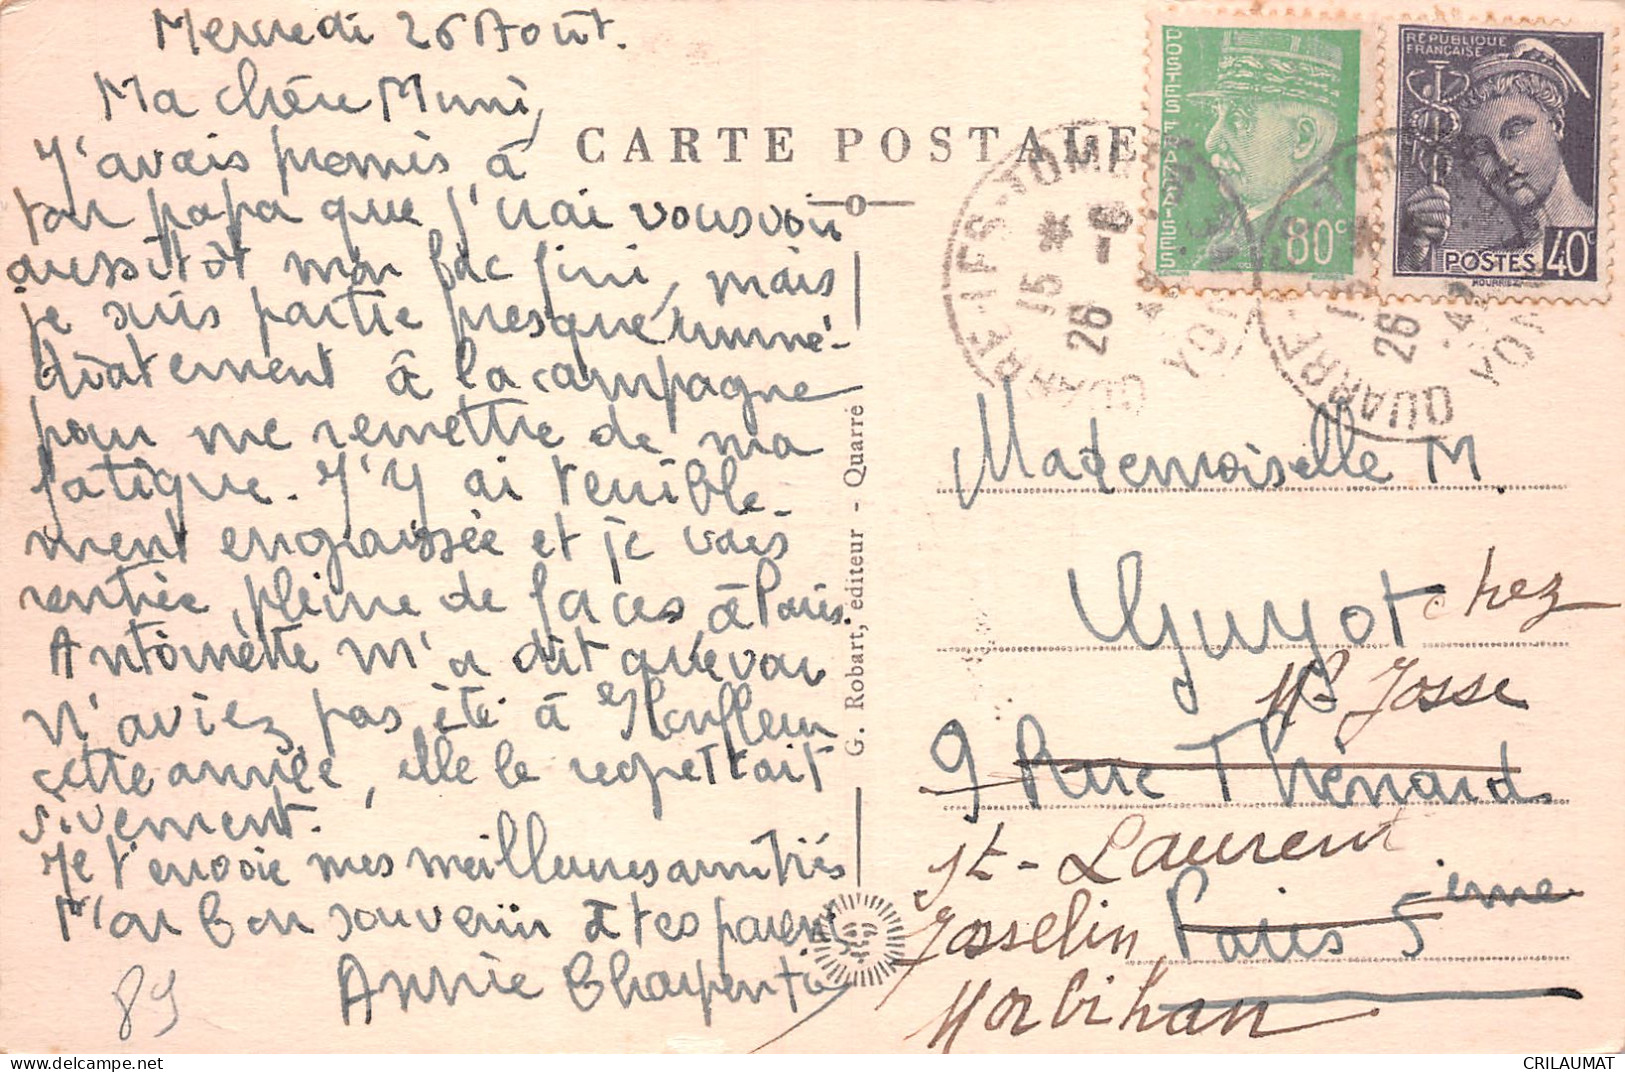 Mercredi 26 Août.
Ma chère Mimi,
J'avais promis à
ton papa que j'irai vous voir
aussitôt mon bac fini, mais
je suis partie presque immé-
diatement à la campagne
pour me remettre de ma
fatigue. J'y ai terrible-
ment engraissée et je vais
rentrée pleine de faces, à Paris.
Antoinette m'a dit que vous
n'aviez pas été à Honfleur
cette année, elle le regrettait
vivement.
Je t'envoie mes meilleures amitiés
mon bon souvenir à tes parents
Annie Charpentier
89
CARTE POSTALE
G. Robart, éditeur - Quarré
POSTES FRANÇAISES
80c
RÉPUBLIQUE
FRANÇAISE
POSTES 40c
QUARRÉ-LES-TOMBES
15 *
26 -8
42
YONNE
QUARRÉ
26
42
YONNE
Mademoiselle M.
Guyot chez
Me Josse
9 Rue Thénard
St-Laurent
Paris 5ème
Josselin
Morbihan
CRILAUMAT